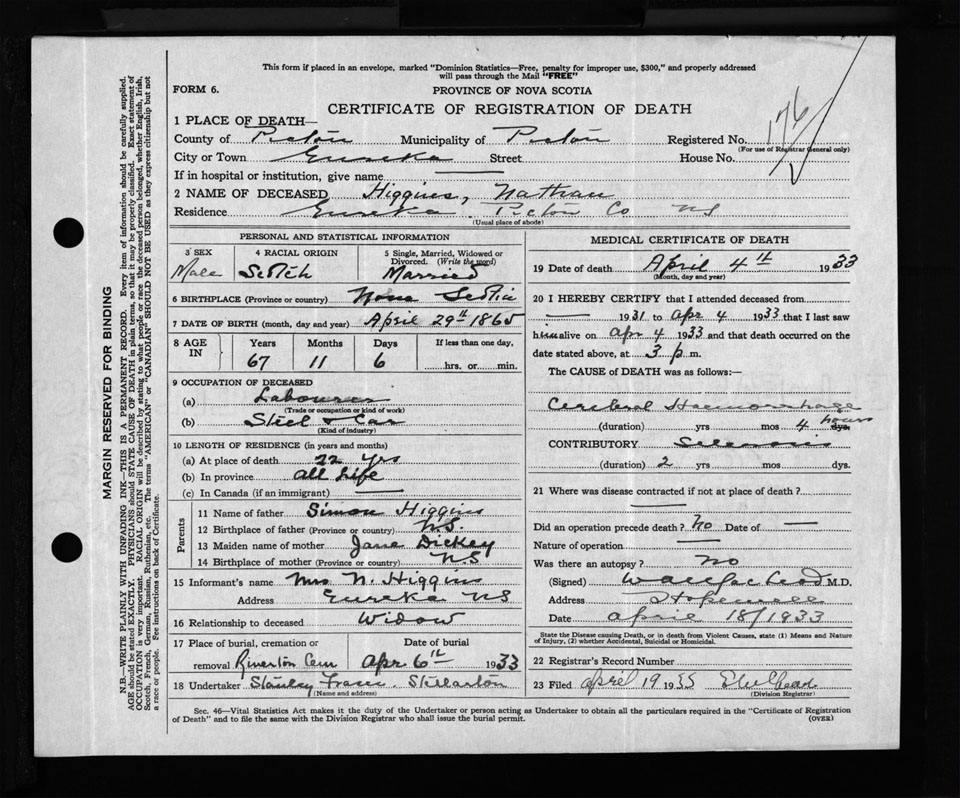 This form if placed in an envelope, marked "Dominion Statistics—Free, penalty for improper use, $300," and properly addressed
will pass through the Mail "FREE"
FORM 6.
PROVINCE OF NOVA SCOTIA
CERTIFICATE OF REGISTRATION OF DEATH
1 PLACE OF DEATH—
County of Pictou Municipality of Pictou Registered No. 176
(For use of Registrar General only)
City or Town Eureka Street House No.
If in hospital or institution, give name —
2 NAME OF DECEASED Higgins, Nathan
Residence Eureka Pictou Co NS
(Usual place of abode)
PERSONAL AND STATISTICAL INFORMATION
3 SEX 4 RACIAL ORIGIN 5 Single, Married, Widowed or Divorced. (Write the word)
Male Scotch Married
6 BIRTHPLACE (Province or country) Nova Scotia
7 DATE OF BIRTH (month, day and year) April 29th 1865
8 AGE IN Years Months Days If less than one day,
67 11 6 hrs. or min.
9 OCCUPATION OF DECEASED
(a) Labourer
(Trade or occupation or kind of work)
(b) Steel & Car
(Kind of industry)
10 LENGTH OF RESIDENCE (in years and months)
(a) At place of death 22 yrs
(b) In province all Life
(c) In Canada (if an immigrant) —
Parents
11 Name of father Simon Higgins
12 Birthplace of father (Province or country) N.S.
13 Maiden name of mother Jane Dickey
14 Birthplace of mother (Province or country) N.S
15 Informant's name Mrs N. Higgins
Address Eureka NS
16 Relationship to deceased Widow
17 Place of burial, cremation or Date of burial
removal Riverton Cem Apr 6th 1933
18 Undertaker Stanley Fraser Stellarton
(Name and address)
MEDICAL CERTIFICATE OF DEATH
19 Date of death April 4th 1933
(Month, day and year)
20 I HEREBY CERTIFY that I attended deceased from
— 1931 to apr 4 1933 that I last saw
him alive on apr 4 1933 and that death occurred on the
date stated above, at 3 p. m.
The CAUSE of DEATH was as follows:—
Cerebral Haemorrhage
(duration) yrs mos 4 hours dys.
CONTRIBUTORY Sclerosis
(duration) 2 yrs mos. dys.
21 Where was disease contracted if not at place of death?
—
Did an operation precede death? no Date of —
Nature of operation —
Was there an autopsy? no
(Signed) M.D.
Address Hopewell
Date april 18/1933
State the Disease causing Death, or in death from Violent Causes, state (1) Means and Nature
of Injury, (2) whether Accidental, Suicidal or Homicidal.
22 Registrar's Record Number
23 Filed april 19 1935
(Division Registrar)
Sec. 46—Vital Statistics Act makes it the duty of the Undertaker or person acting as Undertaker to obtain all the particulars required in the "Certificate of Registration
of Death" and to file the same with the Division Registrar who shall issue the burial permit. (OVER)
MARGIN RESERVED FOR BINDING
N.B.—WRITE PLAINLY WITH UNFADING INK—THIS IS A PERMANENT RECORD. Every item of information should be carefully supplied.
AGE should be stated EXACTLY. PHYSICIANS should STATE CAUSE OF DEATH in plain terms, so that it may be properly classified. Exact statement of
OCCUPATION is very important. RACIAL ORIGIN will be described by stating to what people or race the deceased person belonged, whether English, Irish,
Scotch, French, German, Russian, Ruthenian, etc. The terms "AMERICAN" or "CANADIAN" SHOULD NOT BE USED as they express citizenship but not
a race or people. See instructions on back of Certificate.